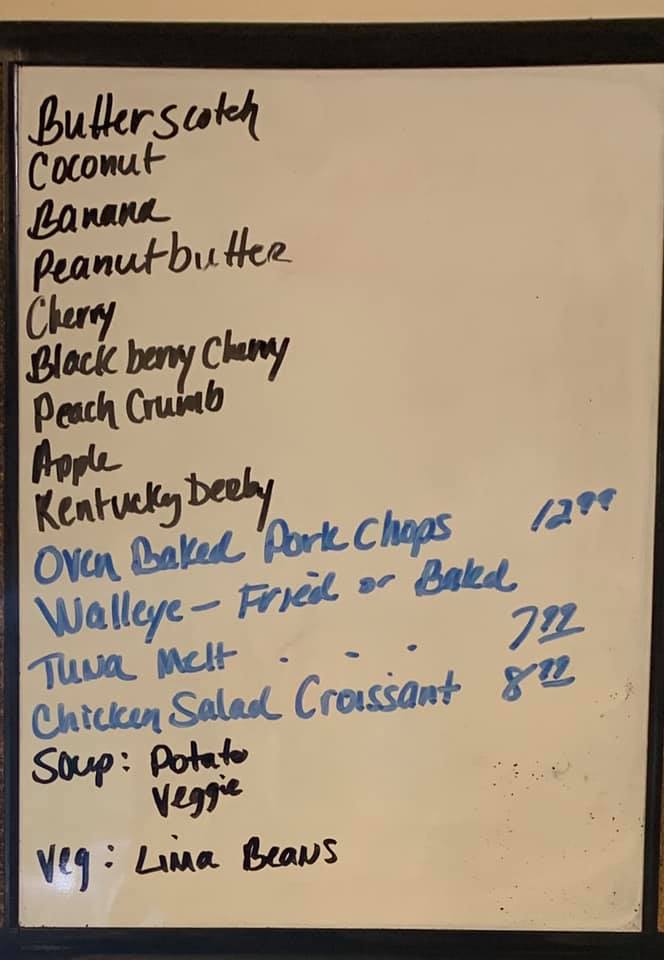 Butterscotch
Coconut
Banana
Peanutbutter
Cherry
Blackberry Cherry
Peach Crumb
Apple
Kentucky Derby
Oven Baked Pork Chops 12.99
Walleye - Fried or Baked
Tuna Melt . - . 7.99
Chicken Salad Croissant 8.99
Soup: Potato
Veggie
Veg: Lima Beans